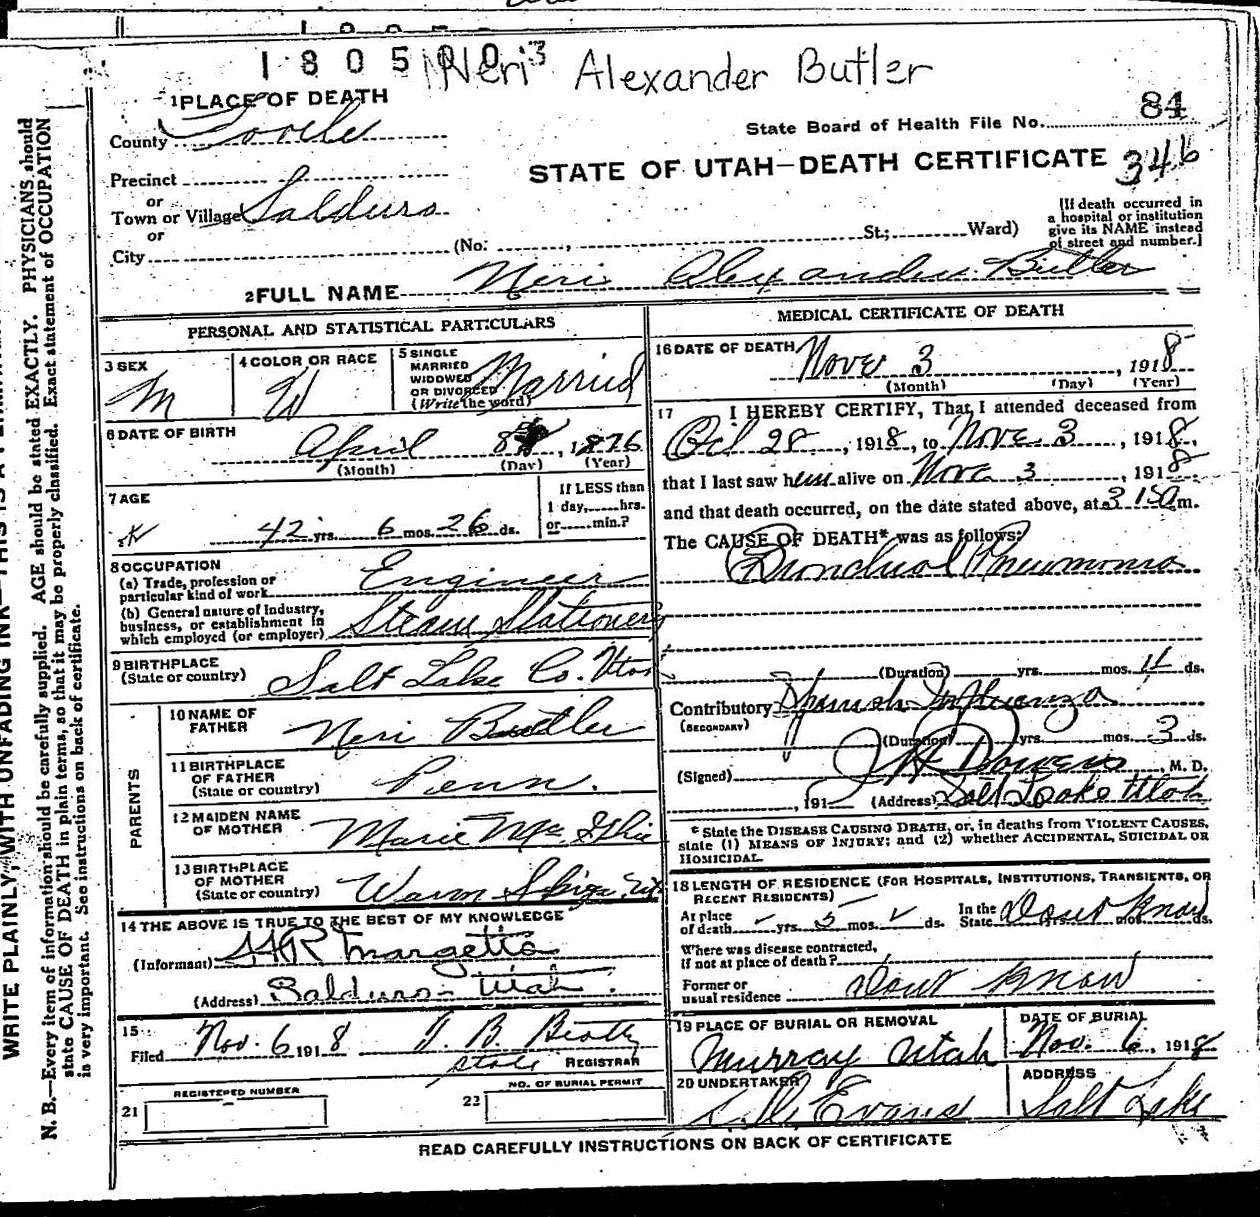 1805003
Neri Alexander Butler
1 PLACE OF DEATH
84
County Tooele
State Board of Health File No.
STATE OF UTAH—DEATH CERTIFICATE 346
Precinct
or
Town or Village Salduro
or
City (No. , St.; Ward)
[If death occurred in
a hospital or institution
give its NAME instead
of street and number.]
2 FULL NAME Neri Alexander Butler
PERSONAL AND STATISTICAL PARTICULARS
3 SEX
M
4 COLOR OR RACE
W
5 SINGLE
MARRIED
WIDOWED
OR DIVORCED
(Write the word)
Married
6 DATE OF BIRTH
April 8, 1876
(Month) (Day) (Year)
7 AGE
42 yrs. 6 mos. 26 ds.
If LESS than
1 day, hrs.
or min.?
8 OCCUPATION
(a) Trade, profession or
particular kind of work Engineer
(b) General nature of industry,
business, or establishment in
which employed (or employer) Steam Stationery
9 BIRTHPLACE
(State or country) Salt Lake Co. Utah
PARENTS
10 NAME OF
FATHER Neri Butler
11 BIRTHPLACE
OF FATHER
(State or country) Penn.
12 MAIDEN NAME
OF MOTHER Marie Mc Ghie
13 BIRTHPLACE
OF MOTHER
(State or country) Warm
14 THE ABOVE IS TRUE TO THE BEST OF MY KNOWLEDGE
(Informant) Margetts
(Address) Salduro- Utah.
15
Filed Nov. 6 1918 T. B. Beatty
State REGISTRAR
REGISTERED NUMBER
21
NO. OF BURIAL PERMIT
22
MEDICAL CERTIFICATE OF DEATH
16 DATE OF DEATH
Nov 3, 1918
(Month) (Day) (Year)
17 I HEREBY CERTIFY, That I attended deceased from
Oct 28, 1918, to Nov. 3, 1918,
that I last saw him alive on Nov. 3, 1918
and that death occurred, on the date stated above, at 3 15 a m.
The CAUSE OF DEATH* was as follows:
Bronchial Pneumonia
(Duration) yrs. mos. ds.
Contributory Spanish Influenza
(SECONDARY)
(Duration) yrs. mos. 3 ds.
(Signed) , M. D.
, 191 (Address) Salt Lake Utah
* State the DISEASE CAUSING DEATH, or, in deaths from VIOLENT CAUSES,
state (1) MEANS OF INJURY; and (2) whether ACCIDENTAL, SUICIDAL OR
HOMICIDAL.
18 LENGTH OF RESIDENCE (FOR HOSPITALS, INSTITUTIONS, TRANSIENTS, OR
RECENT RESIDENTS)
At place
of death yrs. 5 mos. ds.
In the
State Dont Know yrs. mos. ds.
Where was disease contracted,
if not at place of death?
Former or
usual residence Dont Know
19 PLACE OF BURIAL OR REMOVAL
Murray Utah
DATE OF BURIAL
Nov. 6, 1918
20 UNDERTAKER
Evans
ADDRESS
Salt Lake
READ CAREFULLY INSTRUCTIONS ON BACK OF CERTIFICATE
N. B.—Every item of information should be carefully supplied. AGE should be stated EXACTLY. PHYSICIANS should
state CAUSE OF DEATH in plain terms, so that it may be properly classified. Exact statement of OCCUPATION
is very important. See instructions on back of certificate.
WRITE PLAINLY, WITH UNFADING INK—THIS IS A